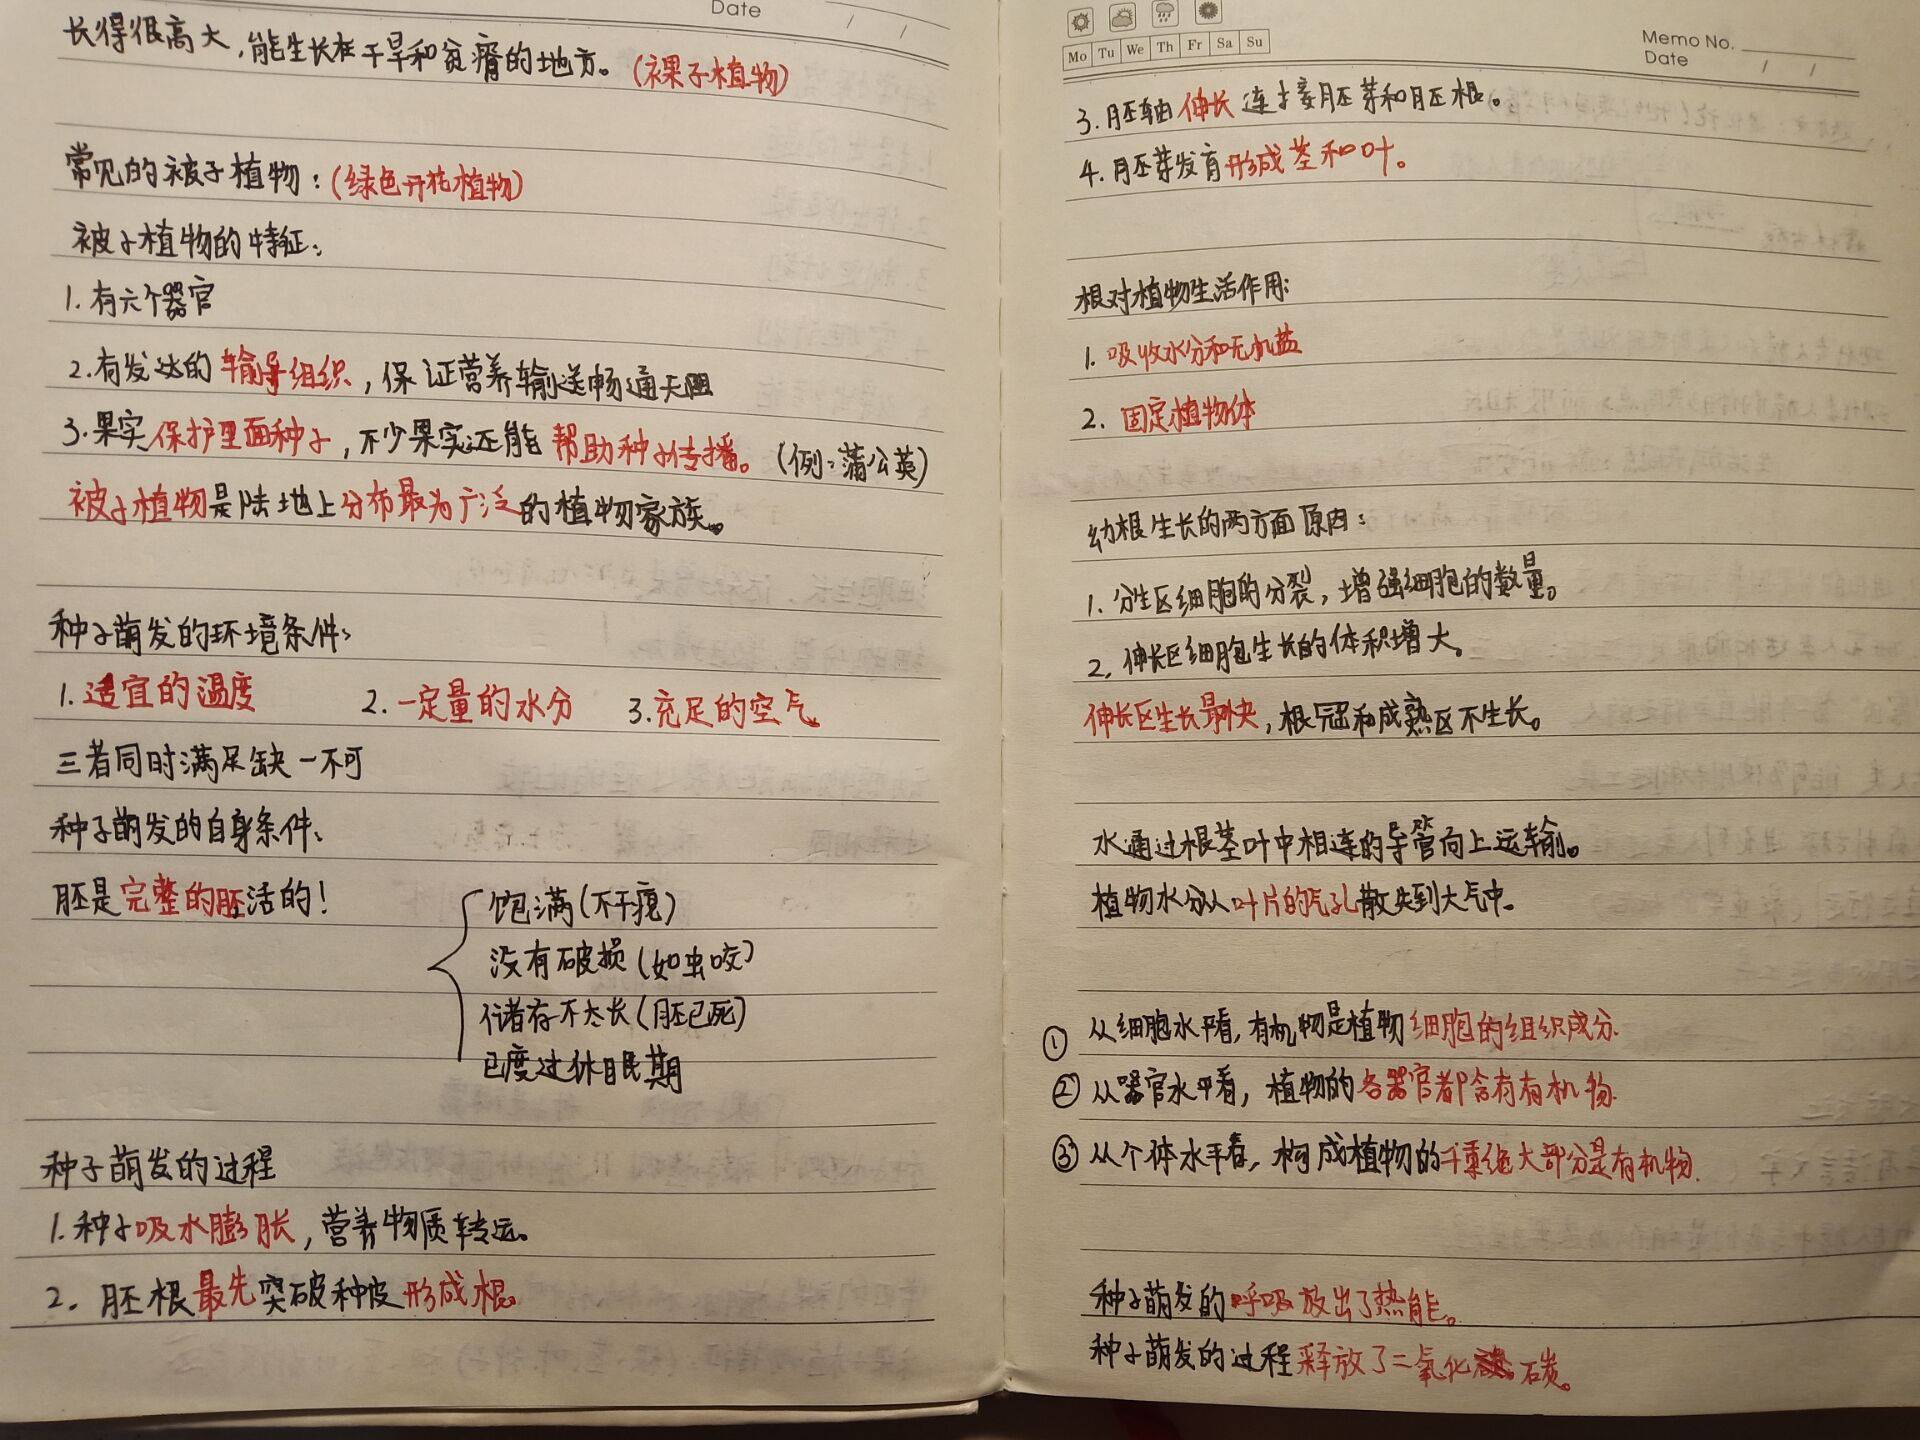 Date
长得很高大,能生长在干旱和贫瘠的地方。(裸子植物)
常见的被子植物:(绿色开花植物)
被子植物的特征:
1.有六个器官
2.有发达的输导组织,保证营养输送畅通无阻
3.果实保护里面种子,不少果实还能帮助种子传播。(例:蒲公英)
被子植物是陆地上分布最为广泛的植物家族。
种子萌发的环境条件:
1.适宜的温度 2.一定量的水分 3.充足的空气
三者同时满足缺一不可
种子萌发的自身条件:
胚是完整的胚活的!
饱满(不干瘪)
没有破损(如虫咬)
储存不太长(胚已死)
已度过休眠期
种子萌发的过程
1.种子吸水膨胀,营养物质转运。
2.胚根最先突破种皮形成根。
Mo Tu We Th Fr Sa Su
Memo No.
Date
3.胚轴伸长连接胚芽和胚根。
4.胚芽发育形成茎和叶。
根对植物生活作用:
1.吸收水分和无机盐
2.固定植物体
幼根生长的两方面原因:
1.分生区细胞的分裂,增强细胞的数量。
2.伸长区细胞生长的体积增大。
伸长区生长最快,根冠和成熟区不生长。
水通过根茎叶中相连的导管向上运输。
植物水分从叶片的气孔散失到大气中。
①从细胞水平看,有机物是植物细胞的组织成分.
②从器官水平看,植物的各器官都含有有机物.
③从个体水平看,构成植物的干重绝大部分是有机物.
种子萌发的呼吸放出了热能。
种子萌发的过程释放了二氧化碳。